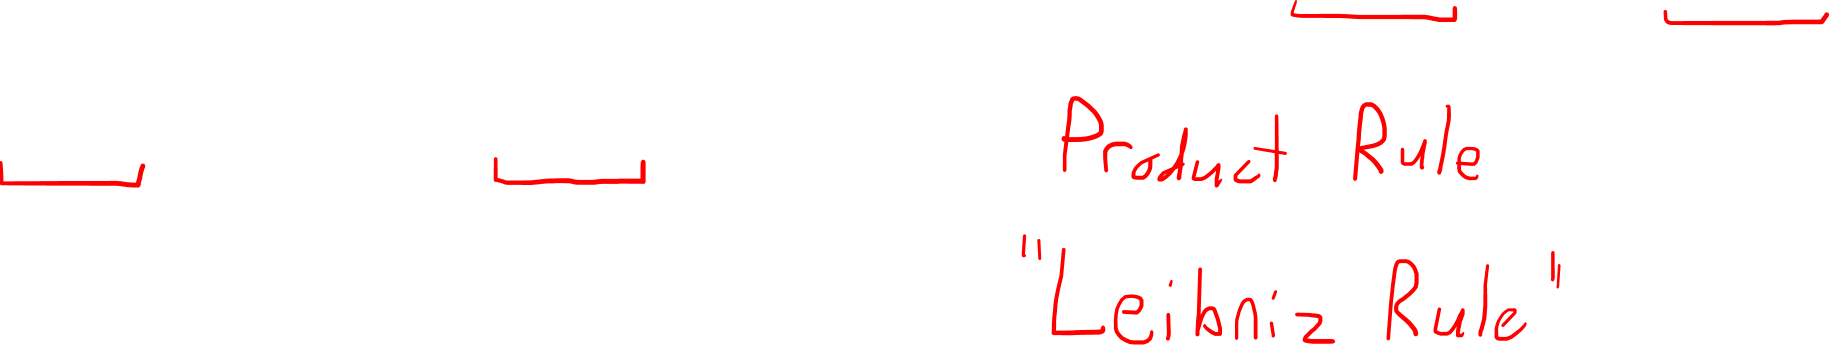 Product Rule
"Leibniz Rule"